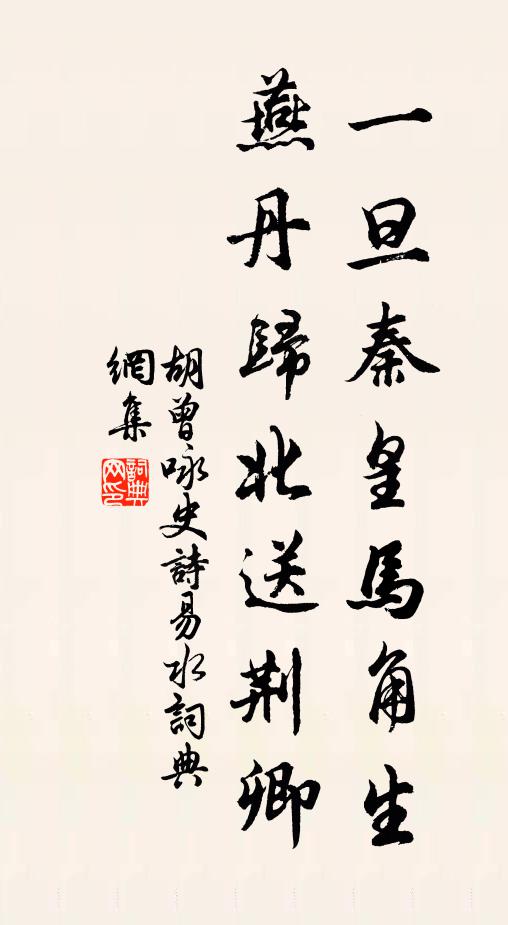 一旦秦皇馬角生
燕丹歸北送荆卿
胡曾咏史詩易水詞典
網集
詞典網印